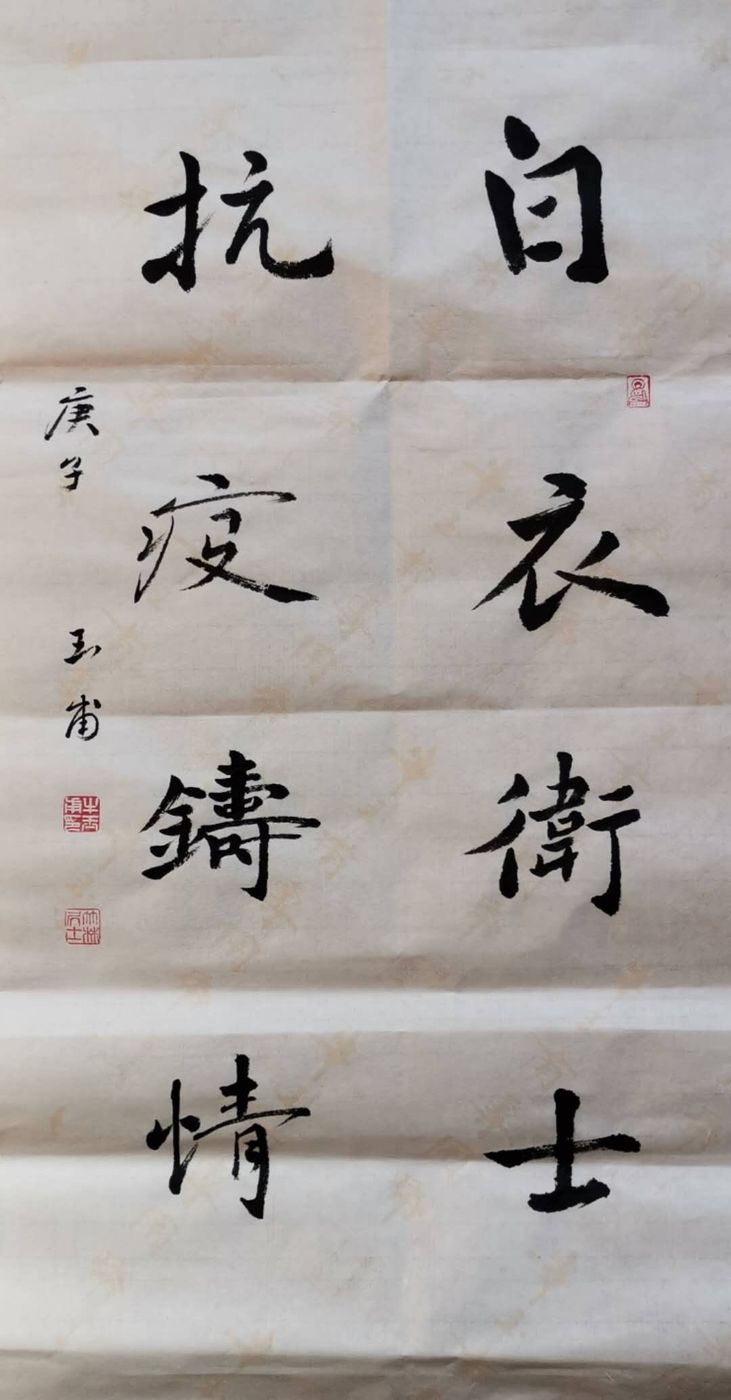 白衣衛士
抗疫鑄情
庚子 玉甫